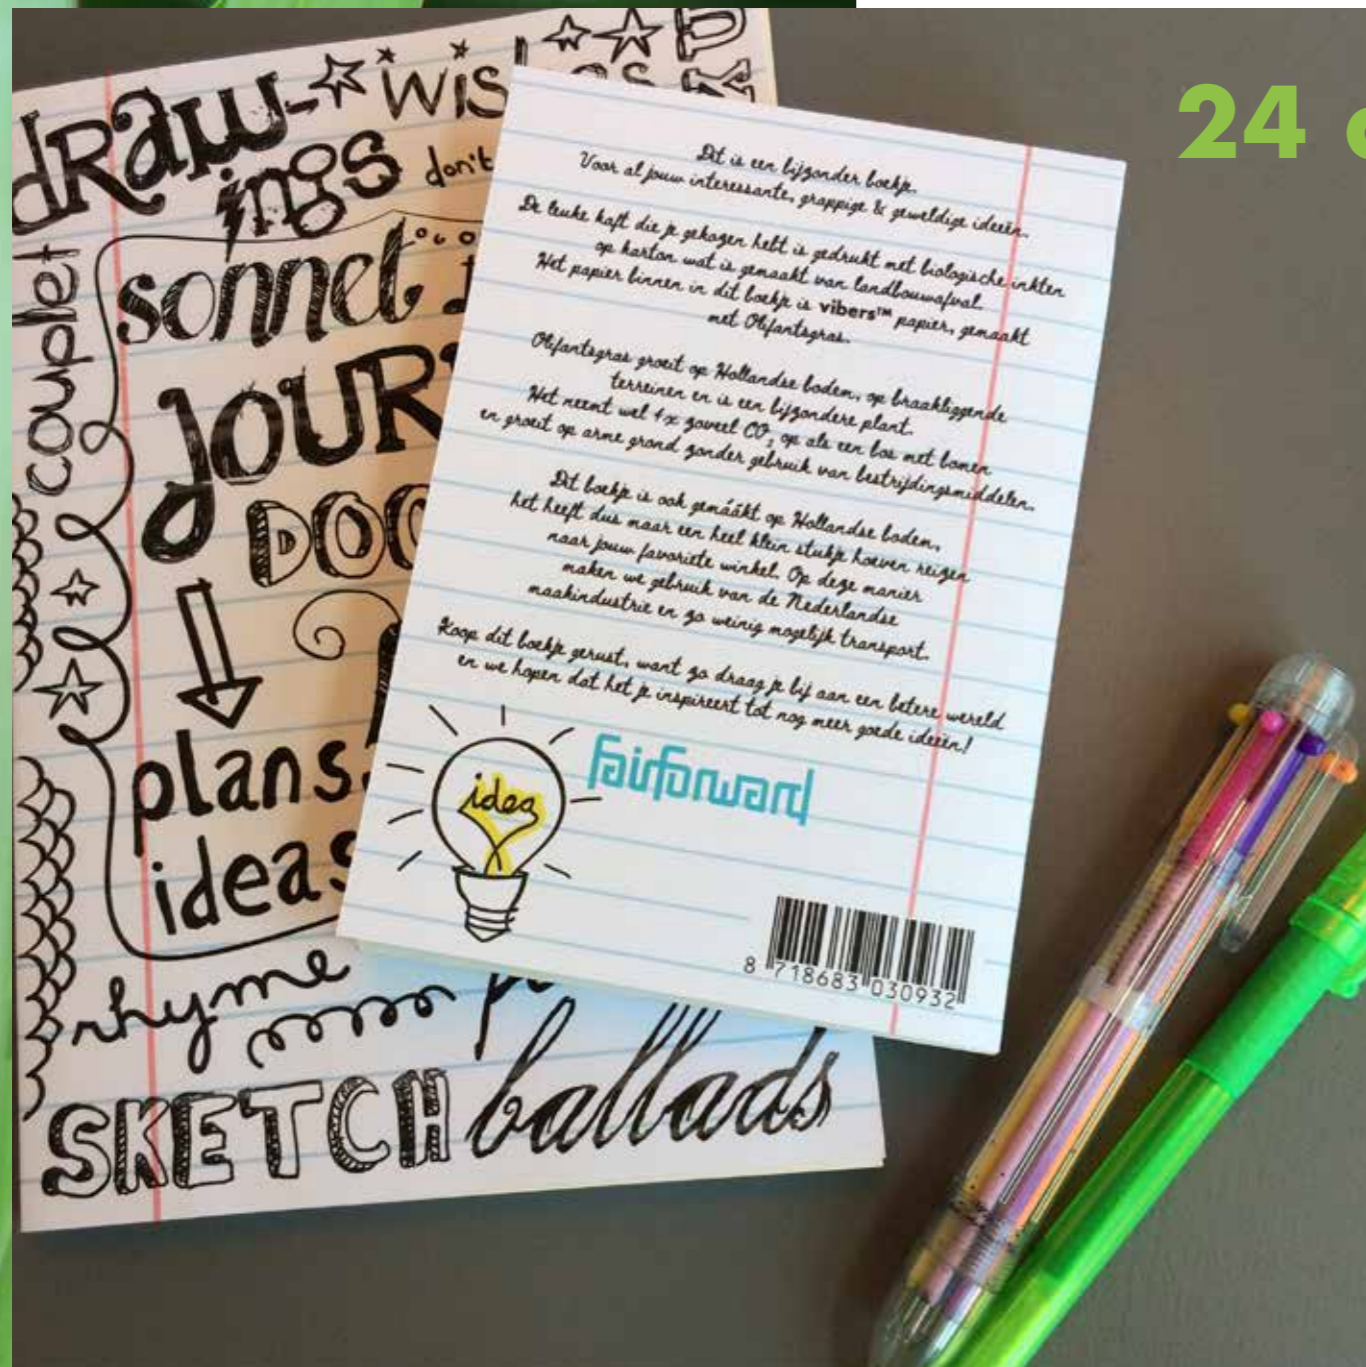 24
draw-
ings
wis
don't
couplet
sonnet
JOUR
DOO
plans.
ideas
rhyme
SKETCH ballads
Dit is een bijzonder boekje.
Voor al jouw interessante, grappige & geweldige ideeën.
De leuke kaft die je gekozen hebt is gedrukt met biologische inkten
op karton wat is gemaakt van landbouwafval.
Het papier binnen in dit boekje is vibers™ papier, gemaakt
met Olifantsgras.
Olifantsgras groeit op Hollandse bodem, op braakliggende
terreinen en is een bijzondere plant.
Het neemt wel 4x zoveel CO₂ op als een bos met bomen
en groeit op arme grond zonder gebruik van bestrijdingsmiddelen.
Dit boekje is ook gemáákt op Hollandse bodem,
het heeft dus maar een heel klein stukje hoeven reizen
naar jouw favoriete winkel. Op deze manier
maken we gebruik van de Nederlandse
maakindustrie en zo weinig mogelijk transport.
Koop dit boekje gerust, want zo draag je bij aan een betere wereld
en we hopen dat het je inspireert tot nog meer goede ideeën!
idea
fairforward
8 718683 030932